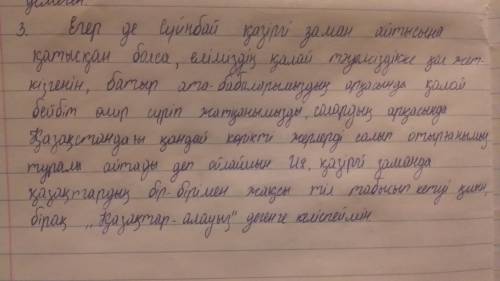 3. Егер де Сүйінбай қазіргі заман айтысына
қатысқан болса, еліміздің қалай тәуелсіздікке қол жет-
кізгенін, батыр ата-бабаларымыздың арқасында қалай
бейбіт өмір сүріп жатқанымызды, солардың арқасында
Қазақстандағы қандай көрікті жерлерді салып отырғанымыз
туралы айтады деп ойлаймын. Ия, қазіргі заманда
қазақтардың бір-бірімен жақсы тіл табысып кетуі қиын,
бірақ „Қазақтар - алауыз" дегенге келіспеймін.